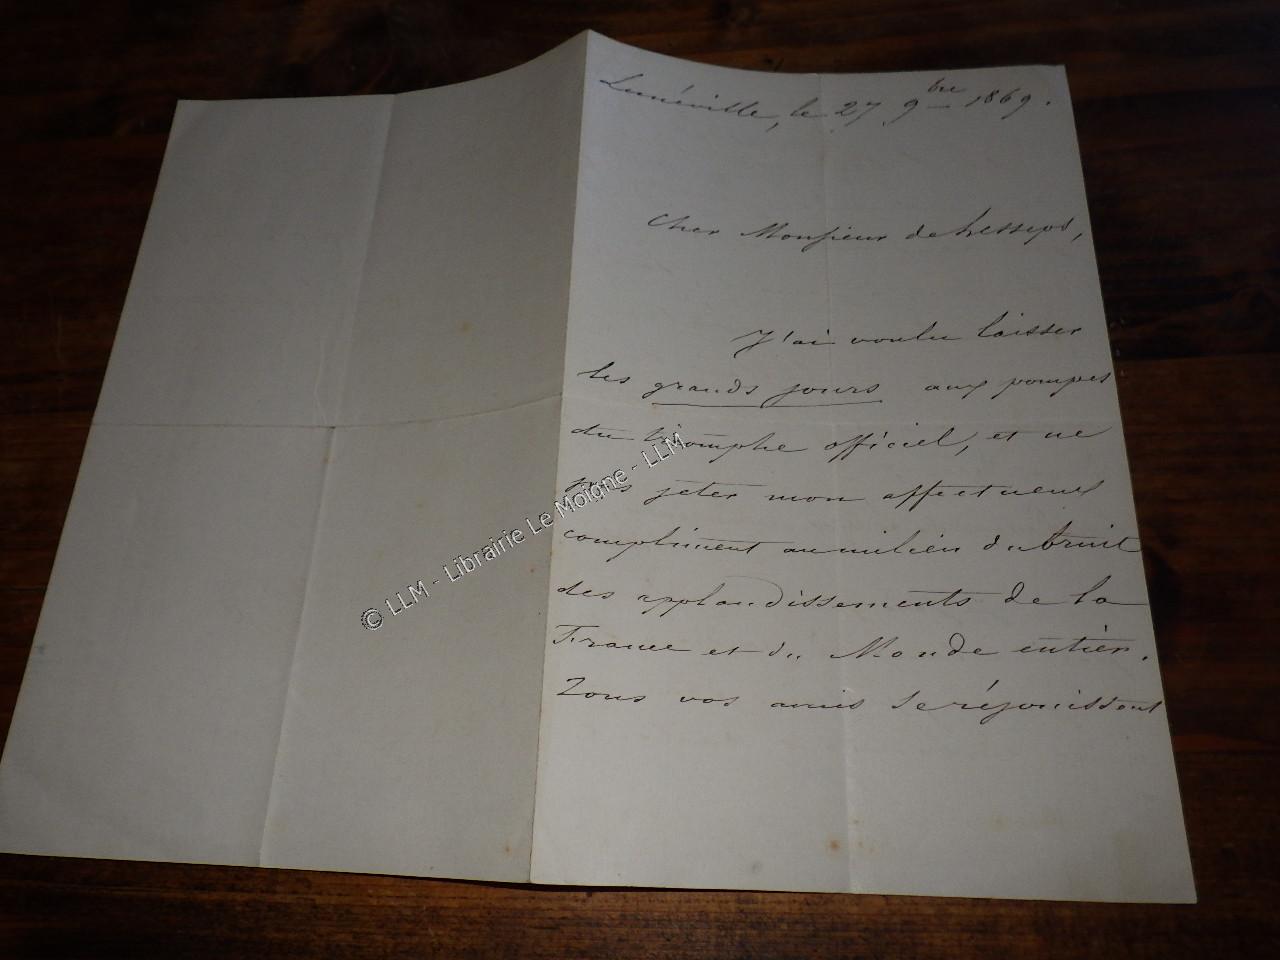 Lunéville, le 27 9bre 1869.
Cher Monsieur de Lesseps,
J'ai voulu laisser
les grands jours aux pompes
du triomphe officiel, et ne
pas jeter mon affectueux
compliment au milieu du bruit
des applaudissements de la
France et du Monde entier.
Tous vos amis se réjouissent
© LLM - Librairie Le Moigne - LLM